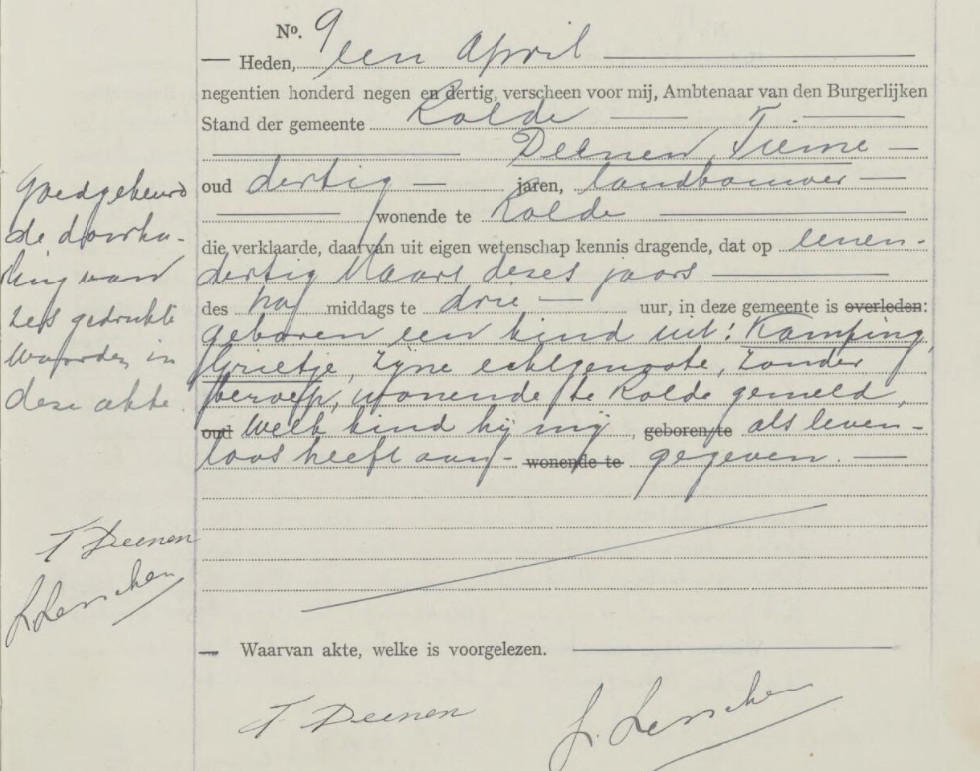 No. 9
Heden, een April
negentien honderd negen en dertig, verscheen voor mij, Ambtenaar van den Burgerlijken
Stand der gemeente Rolde
Deenen, Tieme
oud dertig jaren, landbouwer
wonende te Rolde
die verklaarde, daarvan uit eigen wetenschap kennis dragende, dat op eenen-
dertig Maart dezes jaars
des na middags te drie uur, in deze gemeente is overleden:
geboren een kind uit: Kamping,
Grietje, zijne echtgenoote, zonder
beroep, wonende te Rolde gemeld,
oud welk kind hij mij, geboren te als leven-
loos heeft aan- wonende te gegeven.
Waarvan akte, welke is voorgelezen.
T. Deenen
Goedgekeurd
de doorha-
ling van
zes gedrukte
woorden in
deze akte.
T Deenen